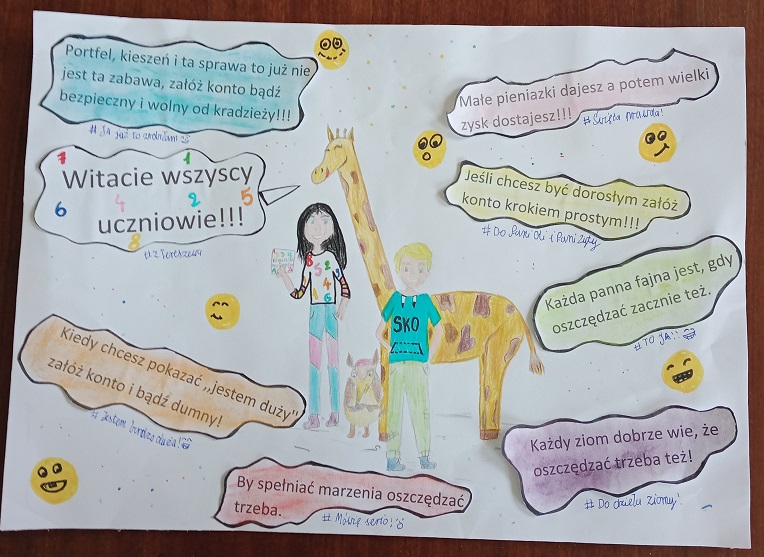 Portfel, kieszeń i ta sprawa to już nie
jest ta zabawa, załóż konto bądź
bezpieczny i wolny od kradzieży!!!
# Ja już to zrobiłam
Witacie wszyscy
uczniowie!!!
7
1
6
4
2
5
8
Małe pieniazki dajesz a potem wielki
zysk dostajesz!!!
# Święta prawda!
Jeśli chcesz być dorosłym załóż
konto krokiem prostym!!!
# Do Pani Oli i Pani Zuzy
Każda panna fajna jest, gdy
oszczędzać zacznie też.
# TO JA!
SKO
Kiedy chcesz pokazać ,,jestem duży"
załóż konto i bądź dumny!
# Jestem bardzo duża!
Każdy ziom dobrze wie, że
oszczędzać trzeba też!
# Do dzieła ziomy!
By spełniać marzenia oszczędzać
trzeba.
# Mówię serio!